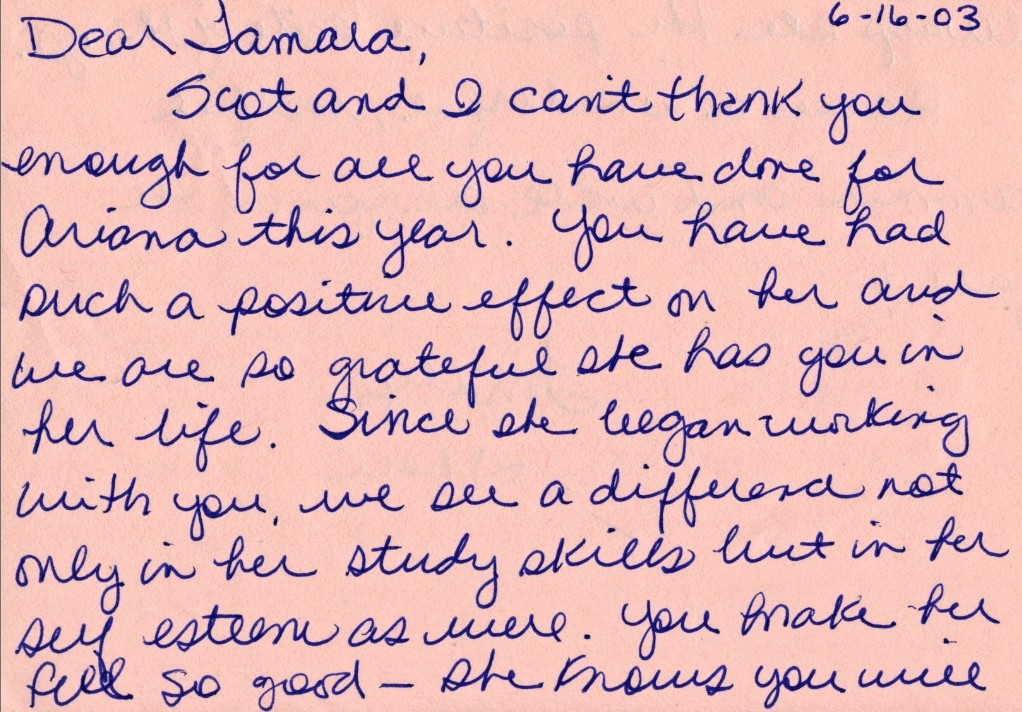 6-16-03
Dear Tamara,
Scot and I can't thank you
enough for all you have done for
Ariana this year. You have had
such a positive effect on her and
we are so grateful she has you in
her life. Since she began working
with you, we see a difference not
only in her study skills but in her
self esteem as well. You make her
feel so good – she knows you will